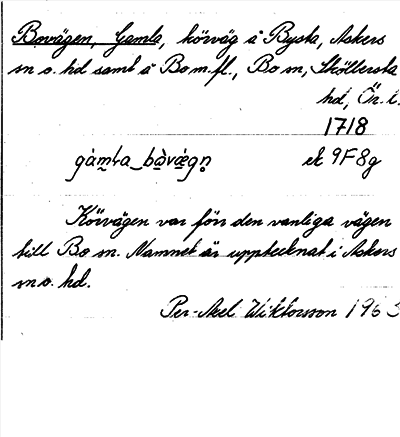 Bovägen, Gamla, körväg å Bysta, Askers
sn o. hd samt å Bo m.fl., Bo sn, Sköllersta
hd, Ör. l.
1718
gàmla_bòvä̀gn̥ ek 9F8g
Körvägen var förr den vanliga vägen
till Bo sn. Namnet är upptecknat i Askers
sn o. hd.
Per-Axel Wiktorsson 1963